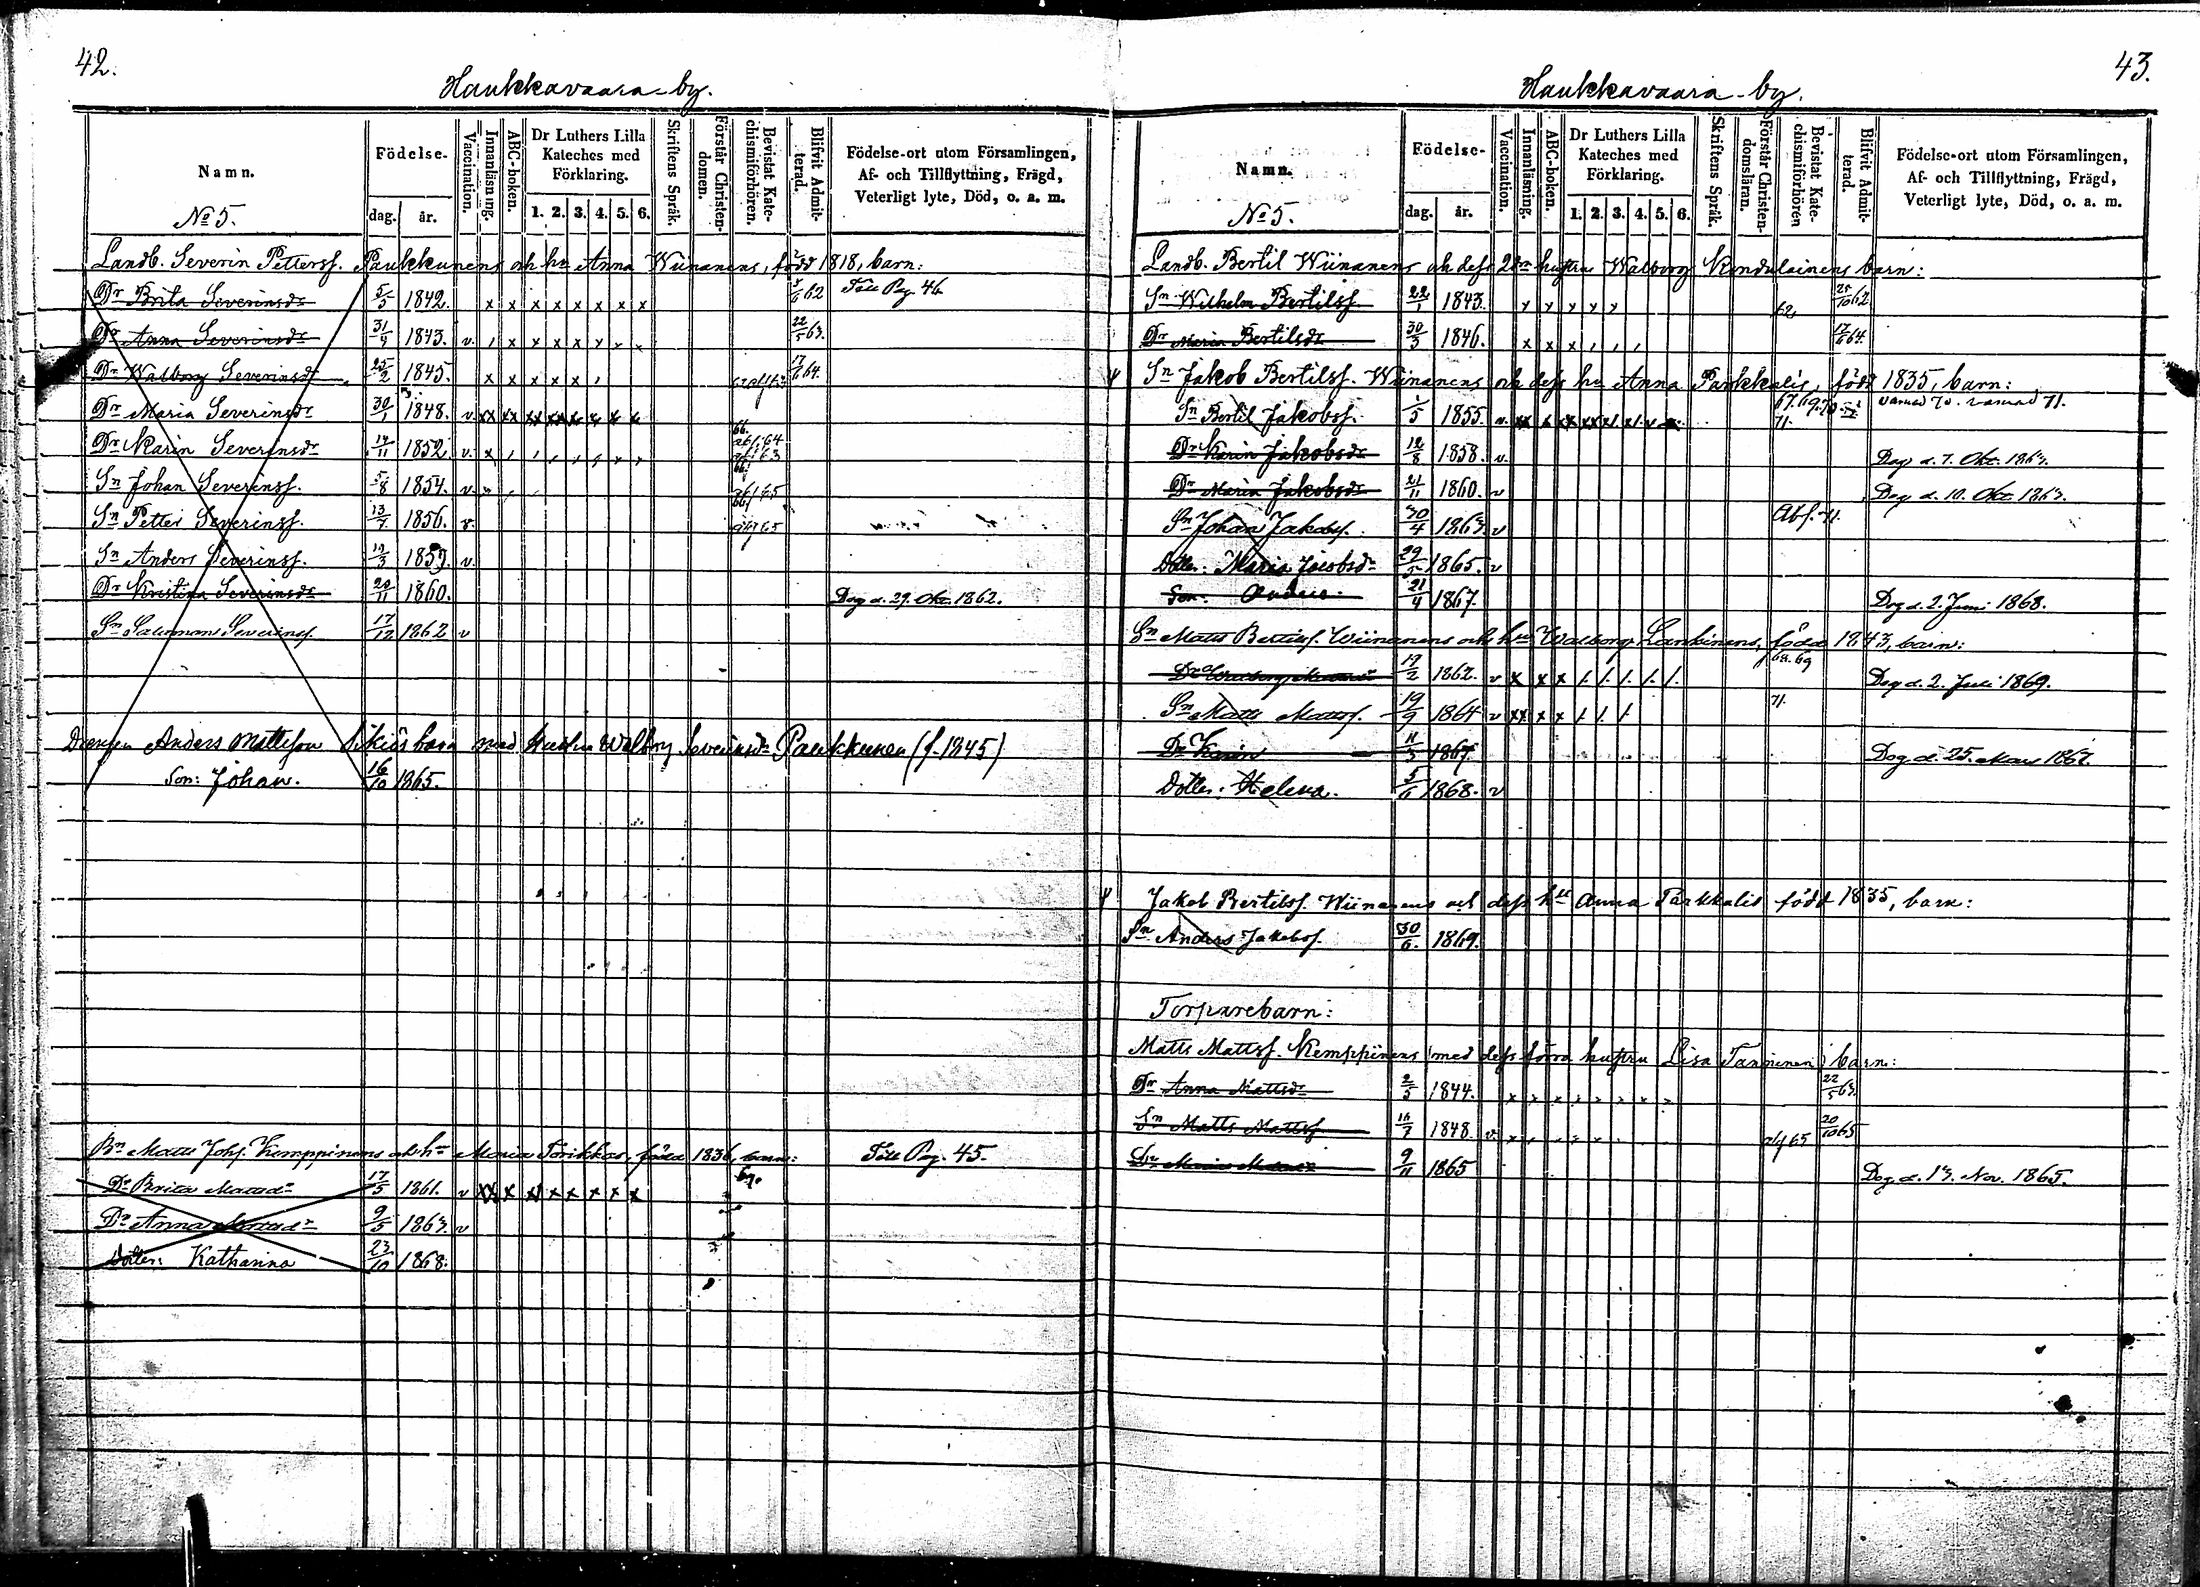 42.
Haukkavaara by.
Namn.
No 5.
Födelse-
dag. år.
Vaccination.
Innanläsning.
ABC-boken.
Dr Luthers Lilla Kateches med Förklaring.
1. 2. 3. 4. 5. 6.
Skriftens Språk.
Förstår Christendomen.
Bevistat Katechismiförhören.
Blifvit Admitterad.
Födelse-ort utom Församlingen,
Af- och Tillflyttning, Frägd,
Veterligt lyte, Död, o. a. m.
Landb. Severin Petterss. Paukkunens och hu Anna Wiinanens, född 1818, barn:
Dr Brita Severinsdr 5/5 1842. x x x x x x x x 62 Till Pag. 46
Dr Anna Severinsdr 31/4 1843. v 22/5 63.
Dr Walborg Severinsdr 25/2 1845. x x x x x 17/6 64.
Dr Maria Severinsdr 30/1 1848. v
Dr Karin Severinsdr 14/11 1852. v
Sn Johan Severinss. 5/8 1854. v
Sn Petter Severinss. 13/7 1856. v.
Sn Anders Severinss. 1859. v.
Dr Kristina Severinsdr 1860. Dog d. 29. Okt. 1862.
Sn Salomon Severinss. 17/12 1862 v
Drengen Anders Mattsson barn med hustru Walborg Severinsdr Paukkunen (f. 1845)
Son: Johan. 16/10 1865.
Matts Johss. Kemppinens och hu Maria Torikkas, född 1836, barn: Till Pag. 45.
Dr Brita Mattsdr 17/5 1861. v 69.
Dr Anna Mattsdr 9/5 1863. v
Dotter: Katharina 23/10 1868.
43.
Haukkavaara by.
Namn.
No 5.
Födelse-
dag. år.
Vaccination.
Innanläsning.
ABC-boken.
Dr Luthers Lilla Kateches med Förklaring.
1. 2. 3. 4. 5. 6.
Skriftens Språk.
Förstår Christendomsläran.
Bevistat Katechismiförhören
Blifvit Admitterad.
Födelse-ort utom Församlingen,
Af- och Tillflyttning, Frägd,
Veterligt lyte, Död, o. a. m.
Landb. Bertil Wiinanens och dess 2dra hustru Walborg barn:
Sn Wilhelm Bertilss. 22/1 1843. 62 25/10 62
Dr Maria Bertilsdr 30/3 1846. 17/6 64.
Sn Jakob Bertilss. Wiinanens och dess hu Anna Parkkalis, född 1835, barn:
Sn Bertil Jakobss. 1/5 1855. v. 67. 69. 70 71.
Dr Karin Jakobsdr 12/8 1858. v. Dog d. 7. Okt. 1863.
Dr Maria Jakobsdr 21/11 1860. v Dog d. 10. Okt. 1863.
Sn Johan Jakobss. 30/4 1863. v Abs. 71.
Dotter: Maria Jacobsdr 29/5 1865. v
Son: Anders 21/4 1867. Dog d. 2. Juni 1868.
Sn Matts Bertilss. Wiinanens och hu Walborg Lankinens, född 1843, barn:
1862. v 68. 69 Dog d. 2. Juli 1869.
Sn Matts Mattss. 19/9 1864 v 71.
Dr Karin 11/3 1867. Dog d. 25. Mars 1867.
Dotter: Helena. 5/6 1868. v
Jakob Bertilss. Wiinanens och dess hu Anna Parkkalis född 1835, barn:
Sn Anders Jakobss. 30/6. 1869.
Torparebarn:
Matts Mattss. Kemppinens med dess förra hustru Lisa Tanninen barn:
Dr Anna Mattsdr 2/5 1844. 22/5 63.
Sn Matts Mattss. 16/7 1848. v 20/10 65
Dr Maria Mattsdr 9/11 1865 Dog d. 13. Nov. 1865.